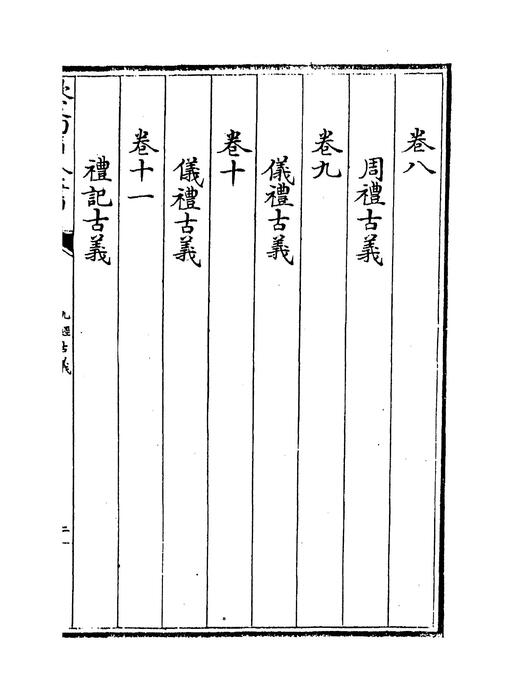 卷八
周禮古義
卷九
儀禮古義
卷十
儀禮古義
卷十一
禮記古義
九經古義